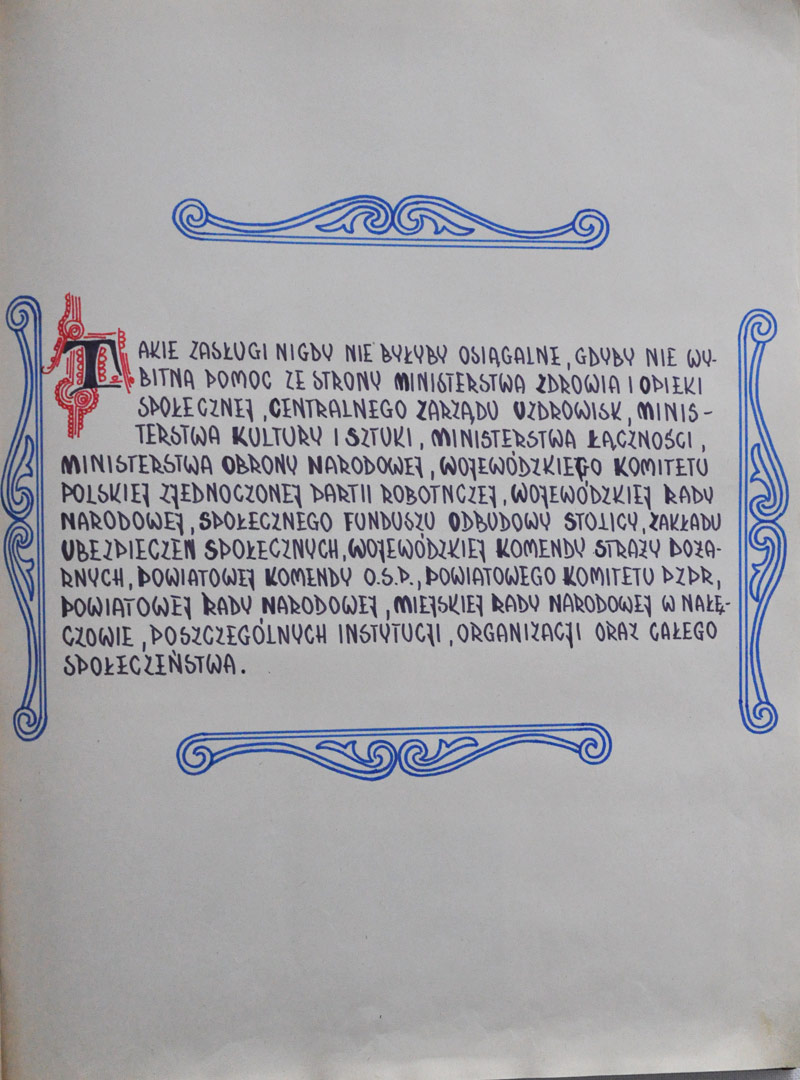 TAKIE ZASŁUGI NIGDY NIE BYŁYBY OSIĄGALNE, GDYBY NIE WY-
BITNA POMOC ZE STRONY MINISTERSTWA ZDROWIA I OPIEKI
SPOŁECZNEJ, CENTRALNEGO ZARZĄDU UZDROWISK, MINIS-
TERSTWA KULTURY I SZTUKI, MINISTERSTWA ŁĄCZNOŚCI,
MINISTERSTWA OBRONY NARODOWEJ, WOJEWÓDZKIEGO KOMITETU
POLSKIEJ ZJEDNOCZONEJ PARTII ROBOTNCZEJ, WOJEWÓDZKIEJ RADY
NARODOWEJ, SPOŁECZNEGO FUNDUSZU ODBUDOWY STOLICY, ZAKŁADU
UBEZPIECZEŃ SPOŁECZNYCH, WOJEWÓDZKIEJ KOMENDY STRAŻY POŻA-
RNYCH, POWIATOWEJ KOMENDY O.S.P., POWIATOWEGO KOMITETU PZPR,
POWIATOWEJ RADY NARODOWEJ, MIEJSKIEJ RADY NARODOWEJ W NAŁĘ-
CZOWIE, POSZCZEGÓLNYCH INSTYTUCJI, ORGANIZACJI ORAZ CAŁEGO
SPOŁECZEŃSTWA.